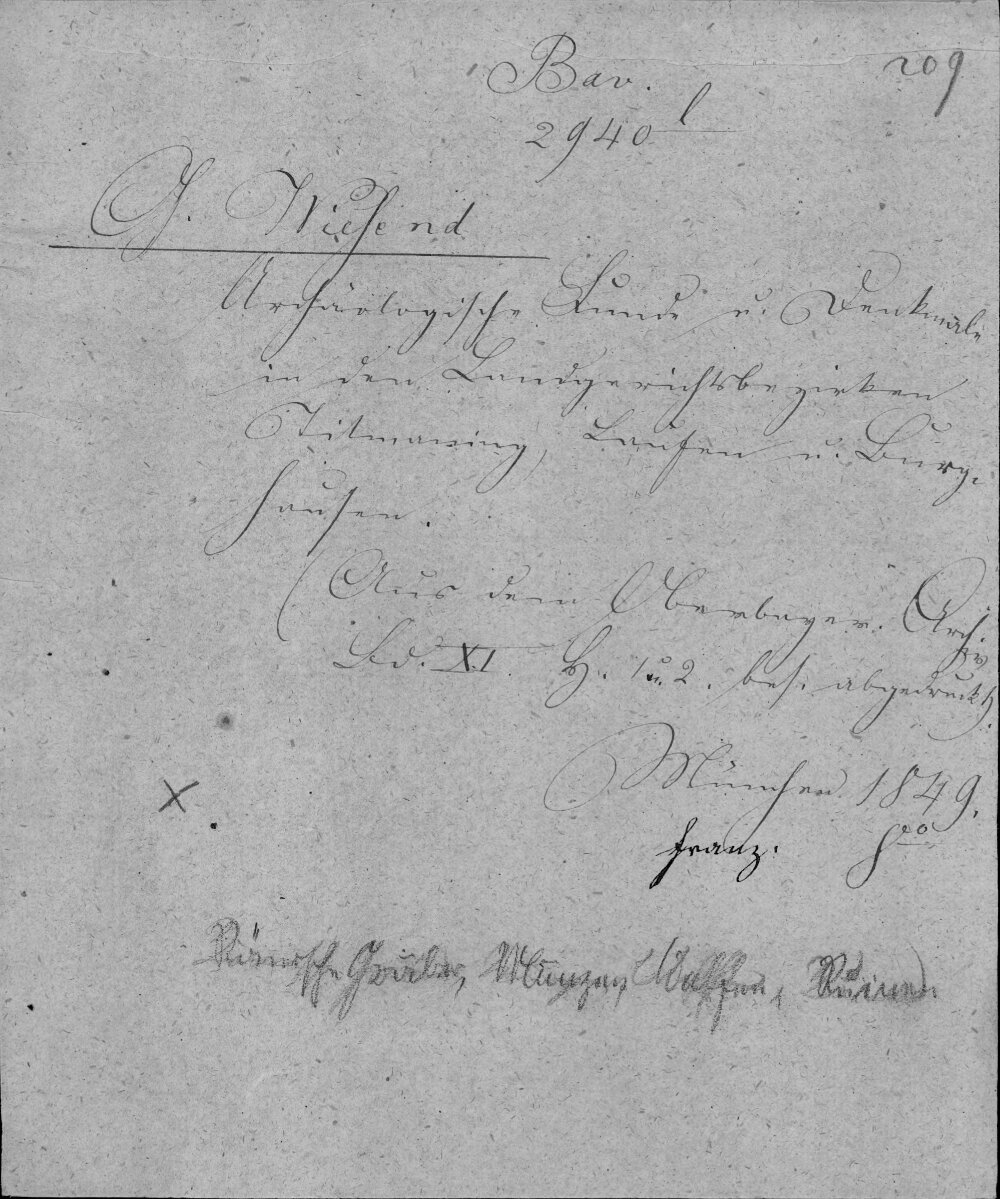 209
Bav.
2940 l
G. Wiesend
Archäologische Funde u. Denkmale
in den Landgerichtsbezirken
Titmaning, Laufen u. Burg-
hausen.
(Aus dem Oberbayer. Archiv
Bd. XI. H. 1 u. 2. bes. abgedruckt).
München 1849.
franz. 8o
X
Römische Gräber, Münzen, Waffen, Ruinen